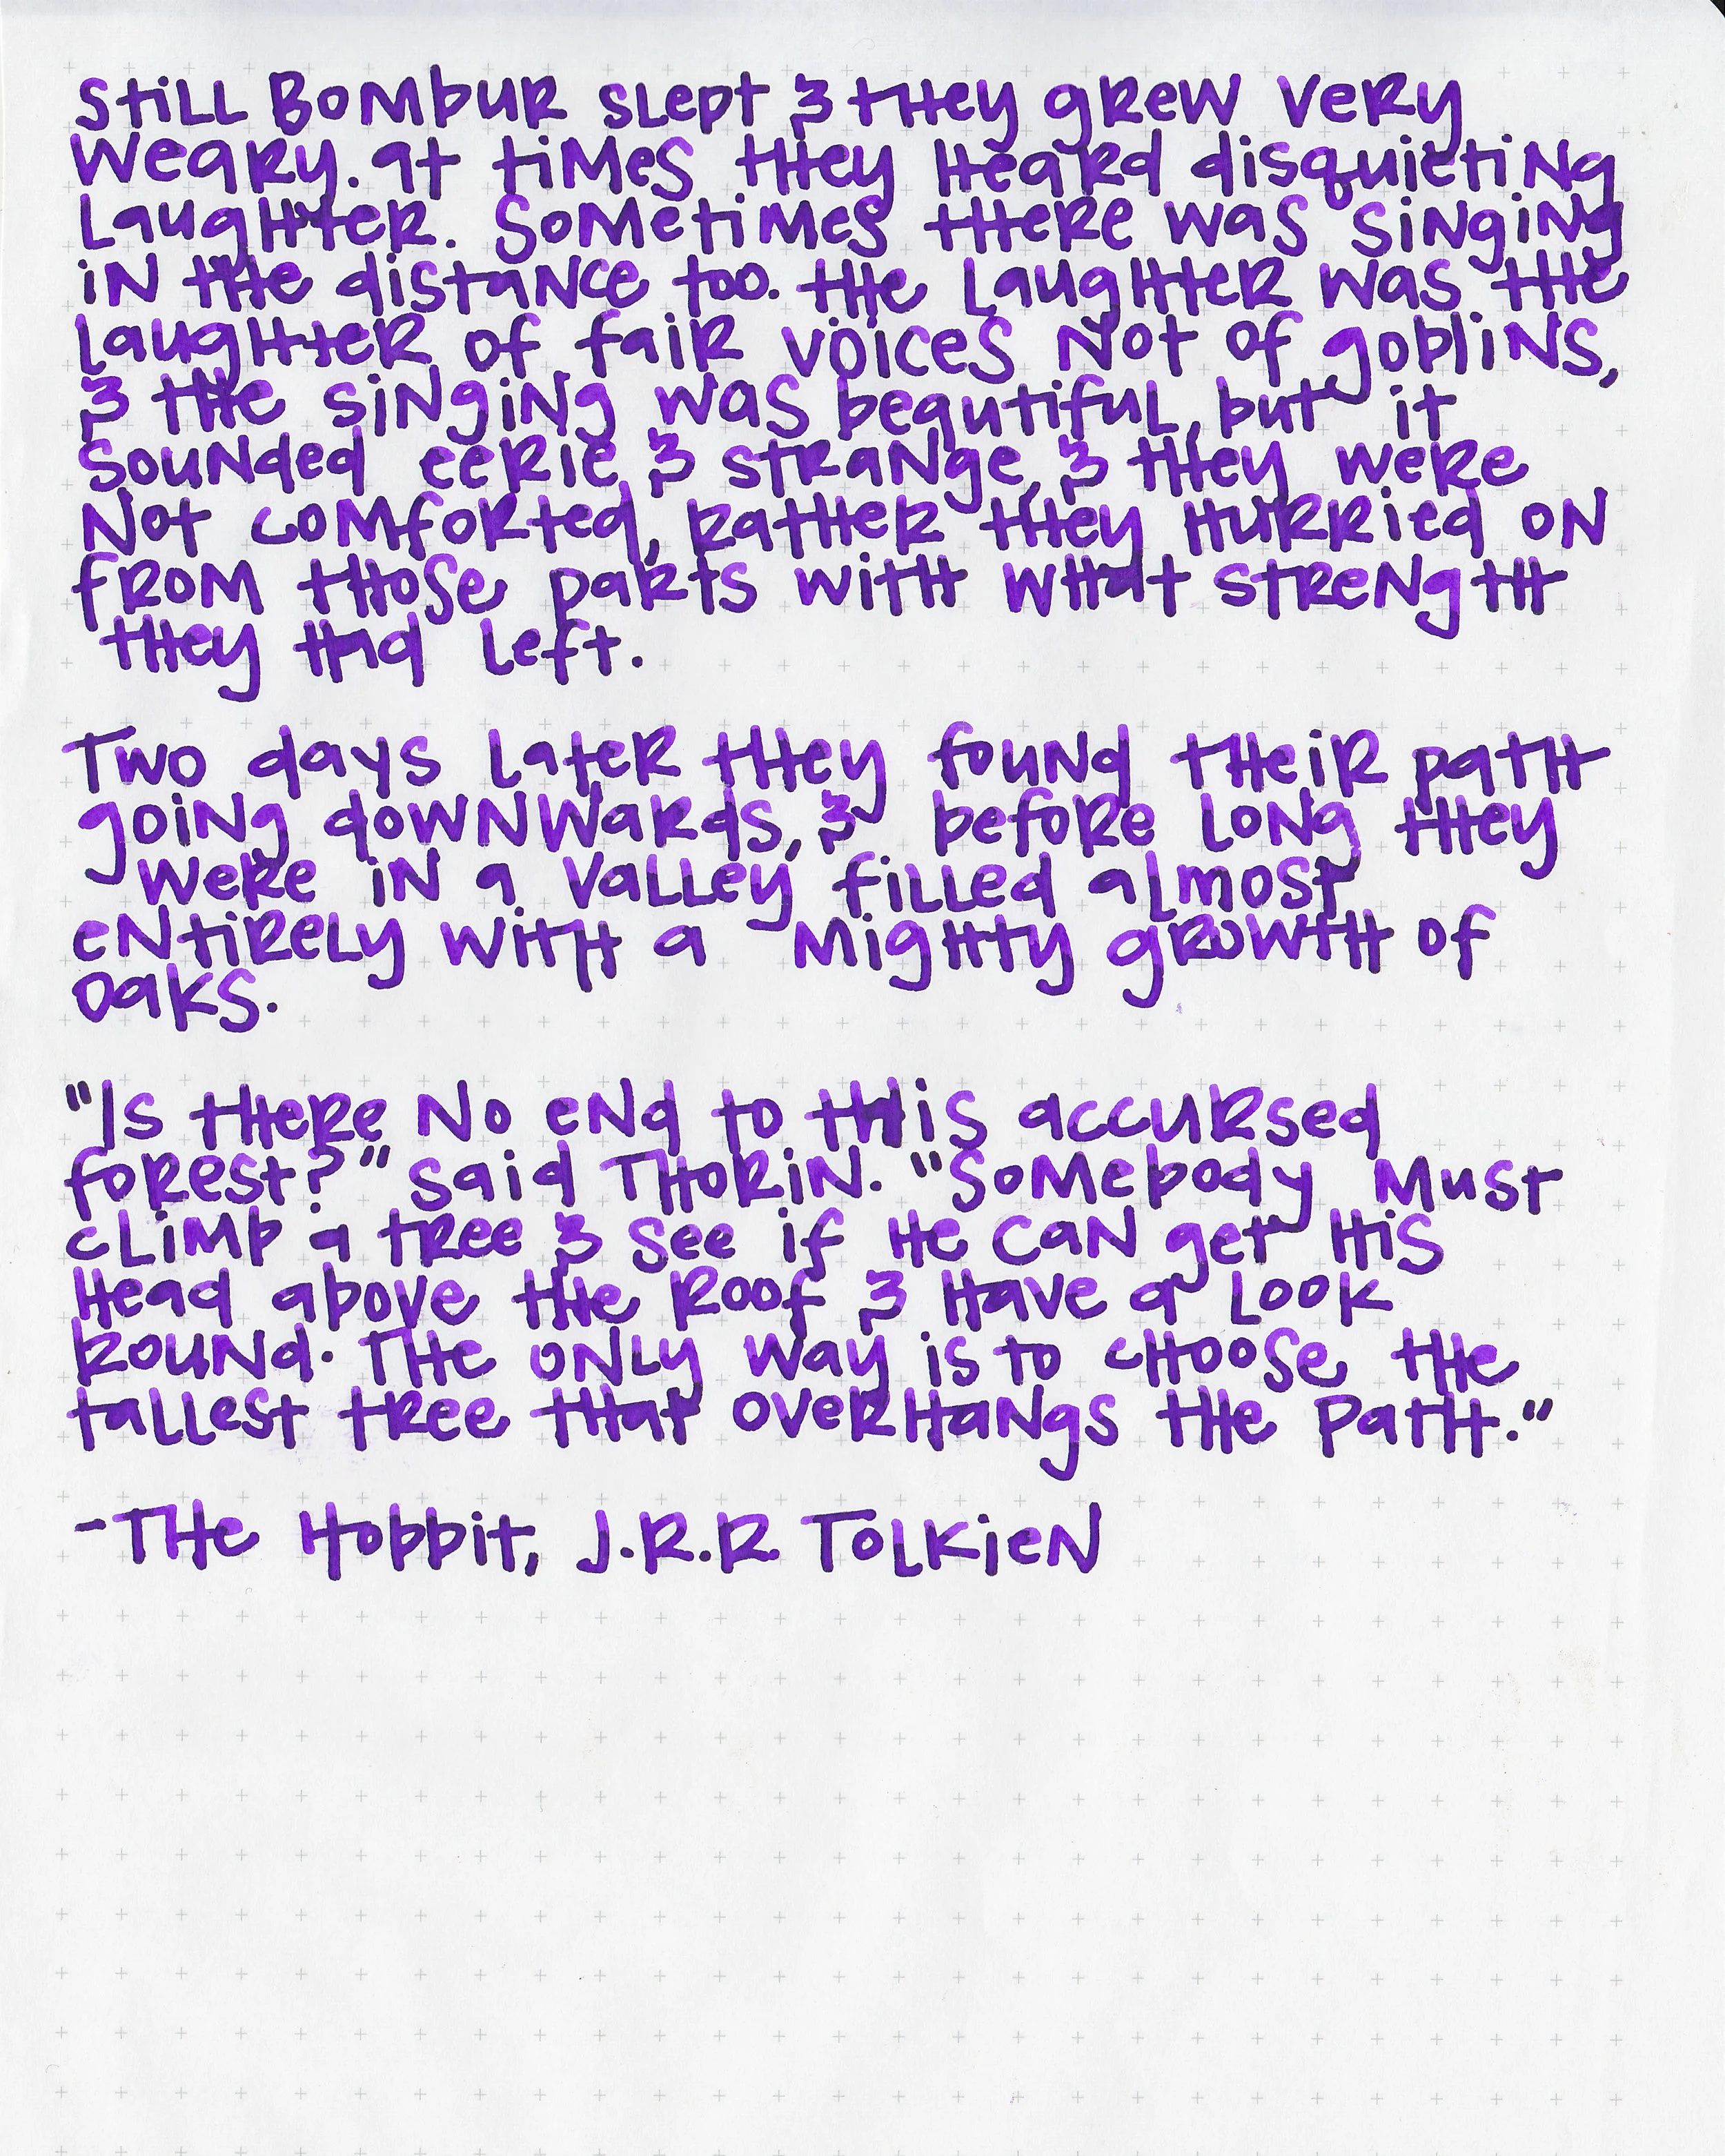 Still Bombur slept & they grew very
weary. at times they heard disquieting
laughter. Sometimes there was singing
in the distance too. the laughter was the
laughter of fair voices not of goblins,
& the singing was beautiful, but it
sounded eerie & strange, & they were
not comforted, rather they hurried on
from those parts with what strength
they had left.
Two days later they found their path
going downwards, & before long they
were in a valley filled almost
entirely with a mighty growth of
oaks.
"Is there no end to this accursed
forest?" said Thorin. "Somebody must
climb a tree & see if he can get his
head above the roof & have a look
round. The only way is to choose the
tallest tree that overhangs the path."
-The Hobbit, J.R.R. Tolkien